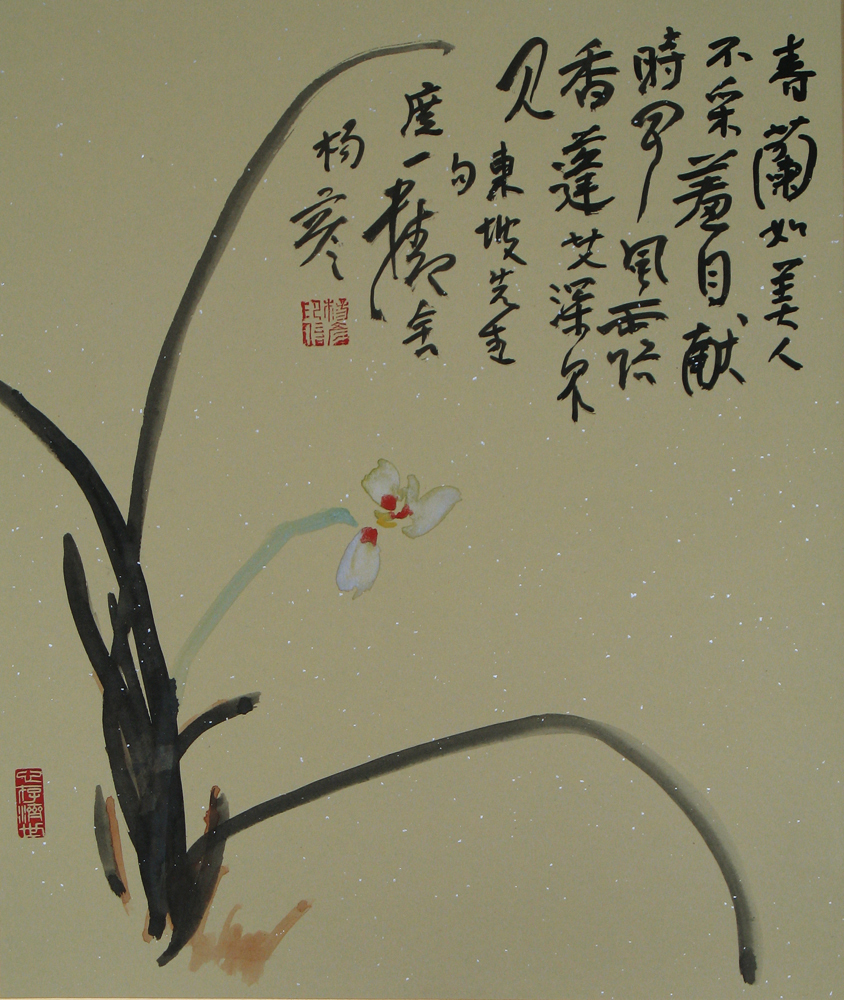 春蘭如美人
不采羞自献
時聞風露
香蓬艾深不
见
東坡先生
句
度一
杨彦
心存濟世